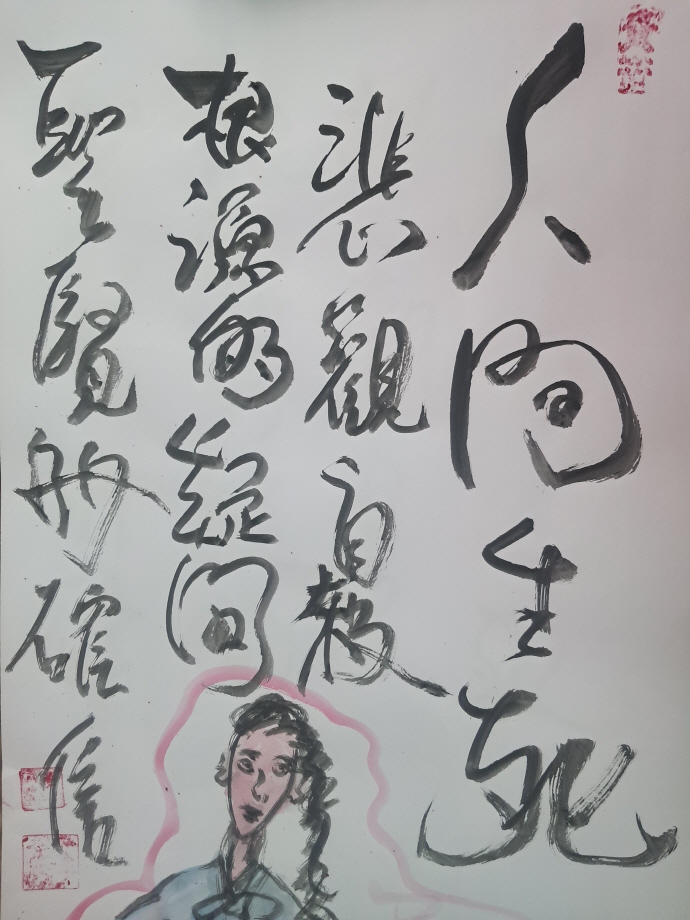 人間生死
悲觀自殺
根源的疑問
聖賢的確信